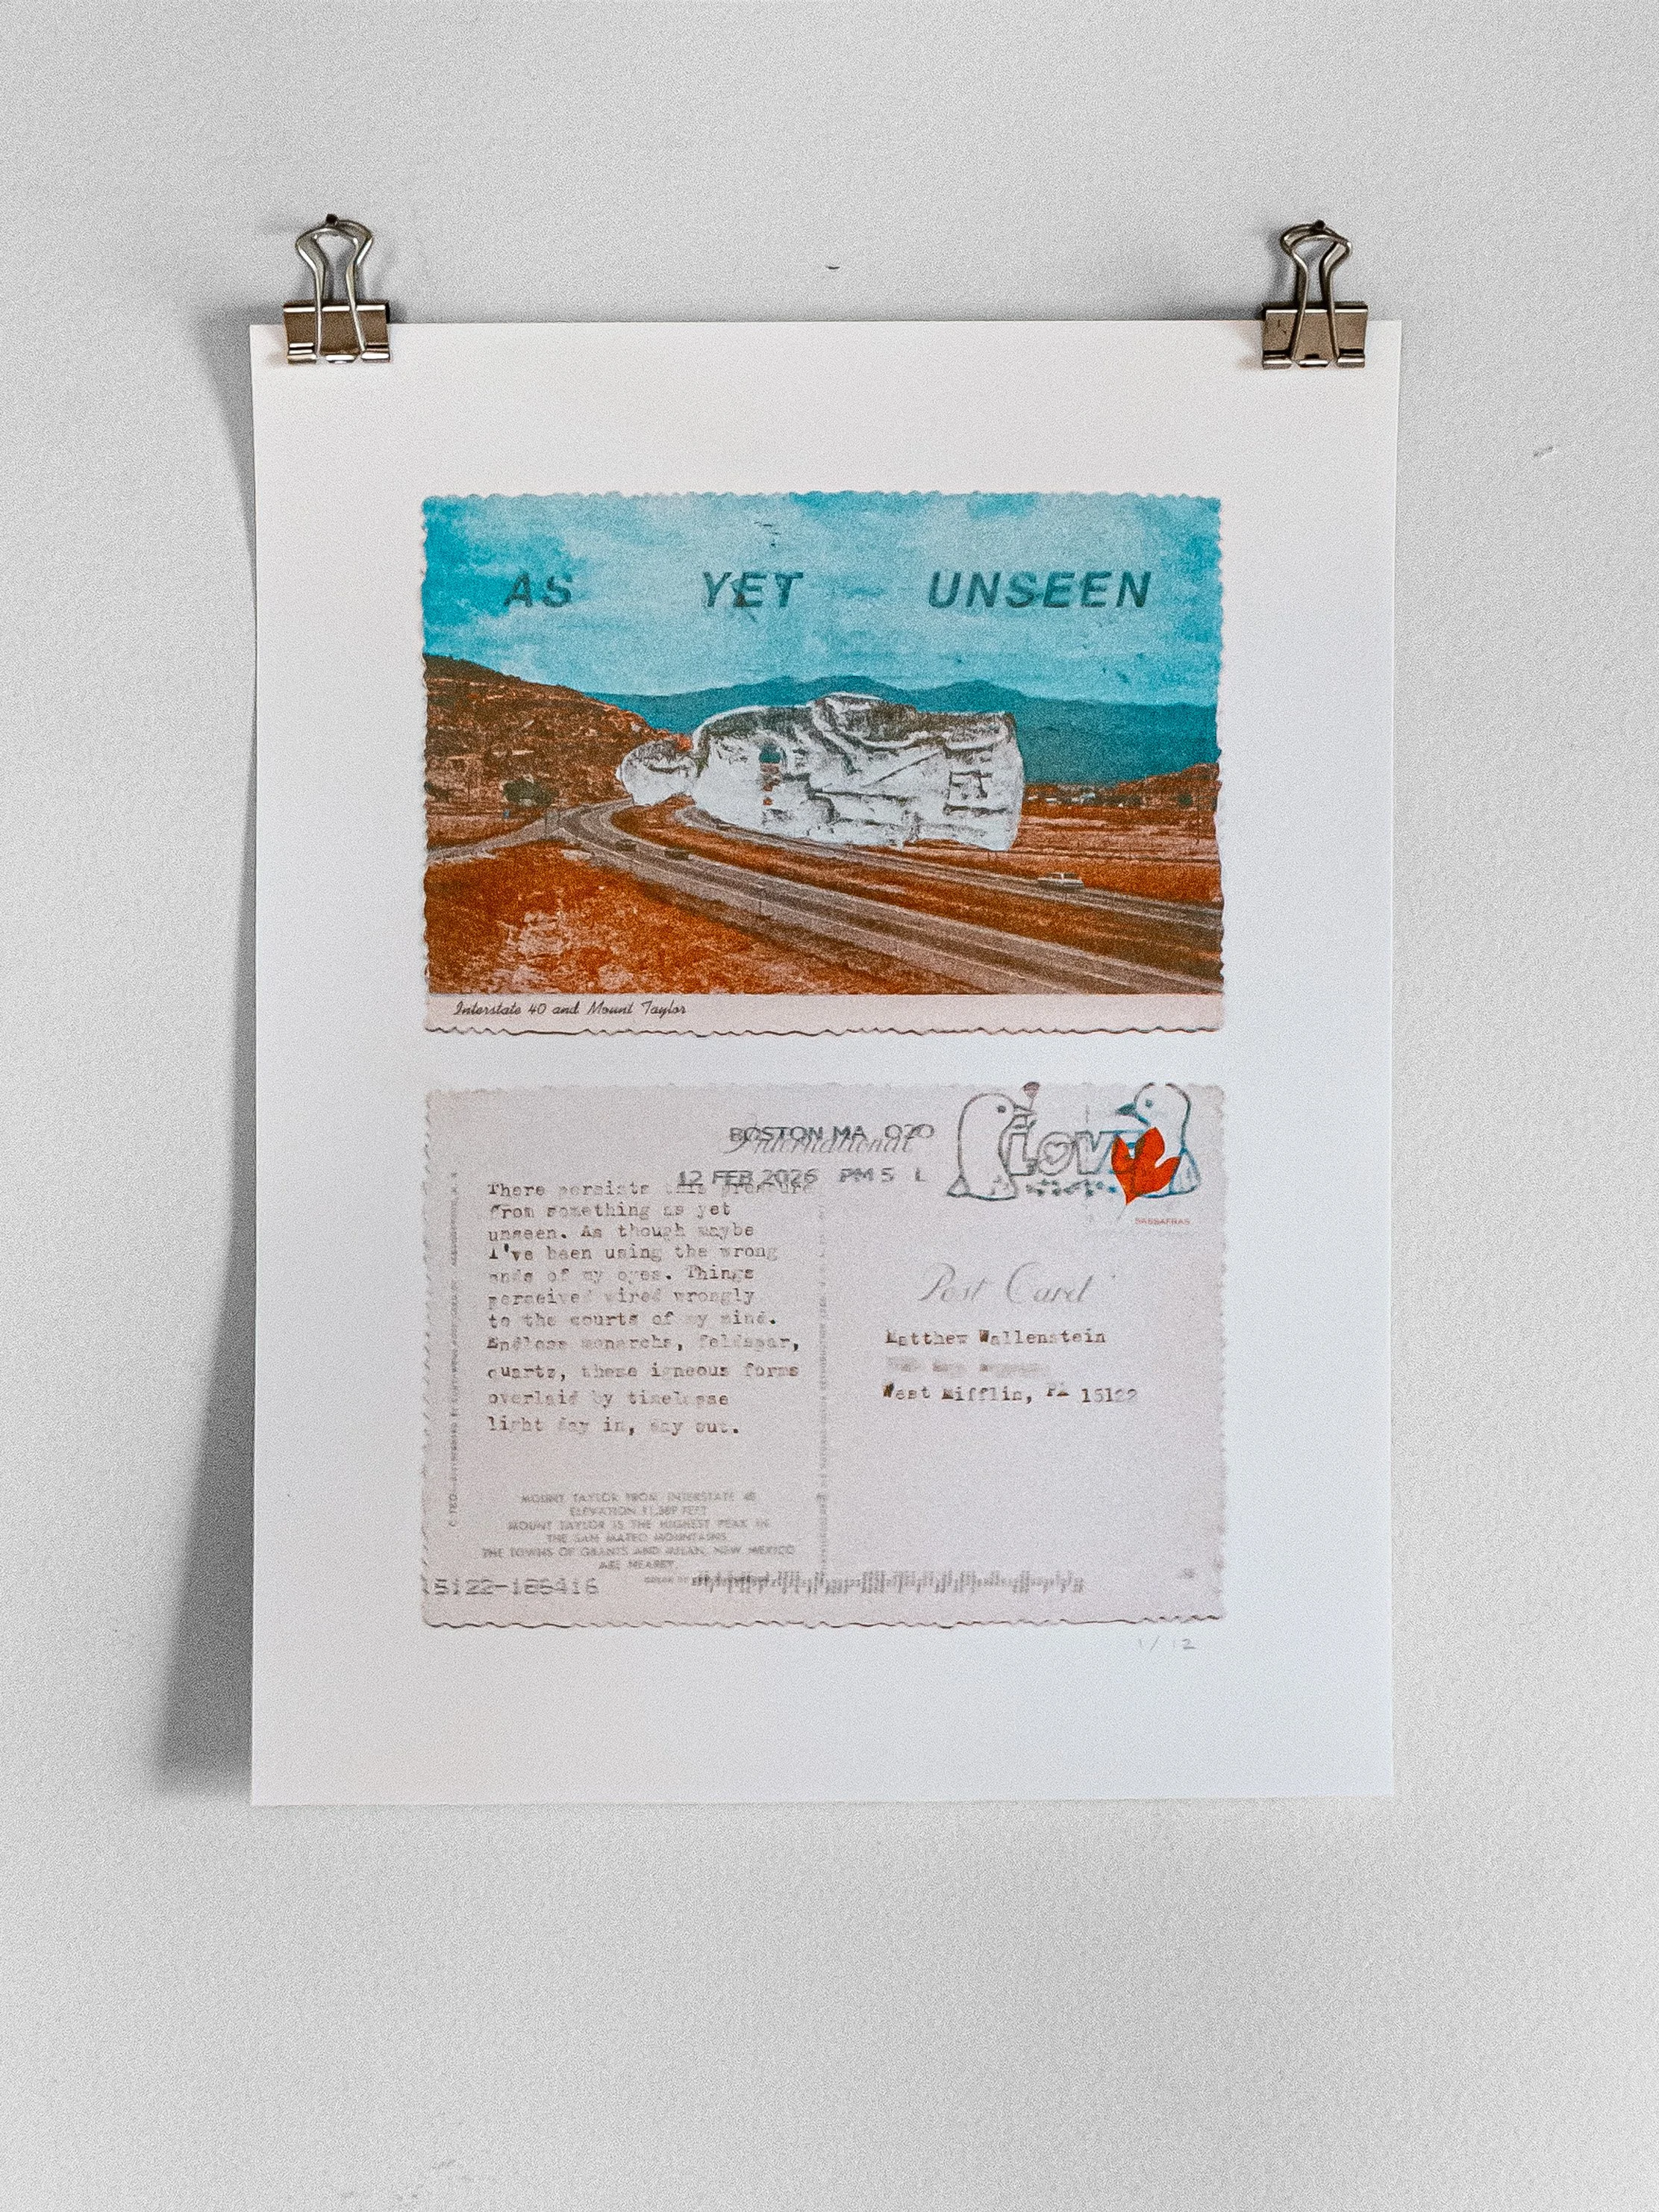 AS YET UNSEEN
Interstate 40 and Mount Taylor
BOSTON MA 020
International
12 FEB 2026 PM 5 L
LOVE
SASSAFRAS
There persists this pressure
from something as yet
unseen. As though maybe
I've been using the wrong
ends of my eyes. Things
perceived wired wrongly
to the courts of my mind.
Endless monarchs, feldspar,
quartz, these igneous forms
overlaid by timelesse
light day in, day out.
Post Card
Matthew Wallenstein
West Mifflin, PA 15122
MOUNT TAYLOR FROM INTERSTATE 40
ELEVATION 11,389 FEET
MOUNT TAYLOR IS THE HIGHEST PEAK IN
THE SAN MATEO MOUNTAINS
THE TOWNS OF GRANTS AND MILAN, NEW MEXICO
ARE NEARBY.
15122-186416
1/12